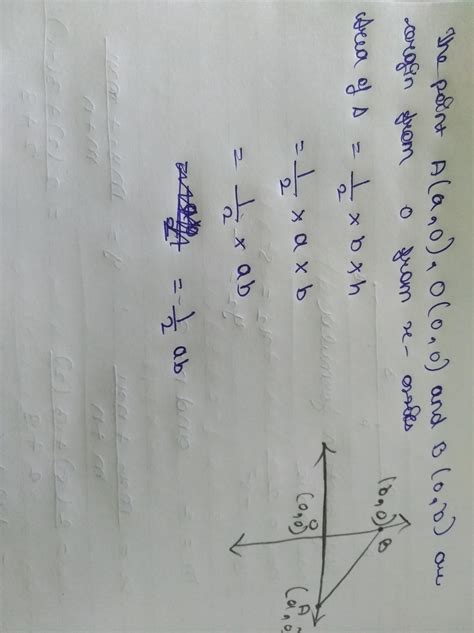 The point A(a,0), O(0,0) and B(0,b) are
from O from x-axes
Area of Δ = 1/2 × b × h
= 1/2 × a × b
= 1/2 × ab
= 1/2 ab
B
(0,b)
O
(0,0)
A
(a,0